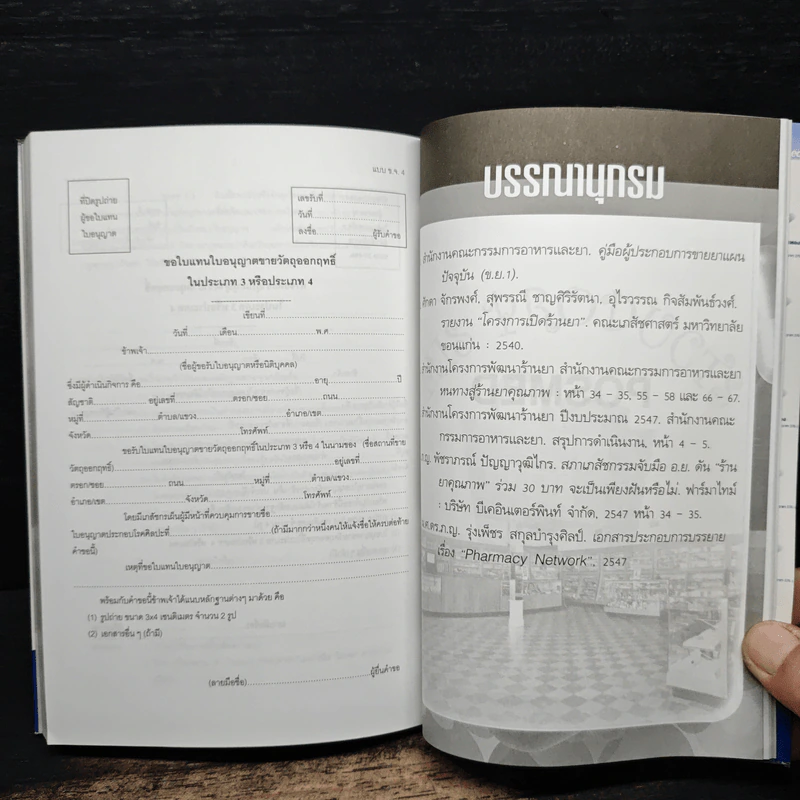 แบบ ข.จ. 4
ที่ปิดรูปถ่าย
ผู้ขอใบแทน
ใบอนุญาต
เลขรับที่
วันที่
ลงชื่อ ผู้รับคำขอ
ขอใบแทนใบอนุญาตขายวัตถุออกฤทธิ์
ในประเภท 3 หรือประเภท 4
เขียนที่
วันที่ เดือน พ.ศ
ข้าพเจ้า
(ชื่อผู้ขอรับใบอนุญาตหรือนิติบุคคล)
ซึ่งมีผู้ดำเนินกิจการ คือ อายุ ปี
สัญชาติ อยู่เลขที่ ตรอก/ซอย ถนน
หมู่ที่ ตำบล/แขวง อำเภอ/เขต
จังหวัด โทรศัพท์
ขอรับใบแทนใบอนุญาตขายวัตถุออกฤทธิ์ในประเภท 3 หรือ 4 ในนามของ (ชื่อสถานที่ขาย
วัตถุออกฤทธิ์) อยู่เลขที่
ตรอก/ซอย ถนน หมู่ที่ ตำบล/แขวง
อำเภอ/เขต จังหวัด โทรศัพท์
โดยมีเภสัชกรเป็นผู้มีหน้าที่ควบคุมการขายชื่อ
ใบอนุญาตประกอบโรคศิลปะที่ (ถ้ามีมากกว่าหนึ่งคนให้แจ้งชื่อให้ครบต่อท้าย
คำขอนี้)
เหตุที่ขอใบแทนใบอนุญาต
พร้อมกับคำขอนี้ข้าพเจ้าได้แนบหลักฐานต่างๆ มาด้วย คือ
(1) รูปถ่าย ขนาด 3x4 เซนติเมตร จำนวน 2 รูป
(2) เอกสารอื่น ๆ (ถ้ามี)
(ลายมือชื่อ) ผู้ยื่นคำขอ
บรรณานุกรม
สำนักงานคณะกรรมการอาหารและยา. คู่มือผู้ประกอบการขายยาแผน
ปัจจุบัน (ข.ย.1).
จักรพงศ์, สุพรรณี ชาญศิริรัตนา, อุไรวรรณ กิจสัมพันธ์วงศ์.
รายงาน "โครงการเปิดร้านยา". คณะเภสัชศาสตร์ มหาวิทยาลัย
ขอนแก่น : 2540.
สำนักงานโครงการพัฒนาร้านยา สำนักงานคณะกรรมการอาหารและยา
หนทางสู่ร้านยาคุณภาพ : หน้า 34 – 35, 55 – 58 และ 66 – 67.
สำนักงานโครงการพัฒนาร้านยา ปีงบประมาณ 2547. สำนักงานคณะ
กรรมการอาหารและยา. สรุปการดำเนินงาน, หน้า 4 – 5.
พัชราภรณ์ ปัญญาวุฒิไกร. สภาเภสัชกรรมจับมือ อ.ย. ดัน "ร้าน
ยาคุณภาพ" ร่วม 30 บาท จะเป็นเพียงฝันหรือไม่. ฟาร์มาไทม์
: บริษัท บีเคอินเตอร์พริ้นท์ จำกัด, 2547 หน้า 34 – 35.
รุ่งเพ็ชร สกุลบำรุงศิลป์. เอกสารประกอบการบรรยาย
เรื่อง "Pharmacy Network". 2547